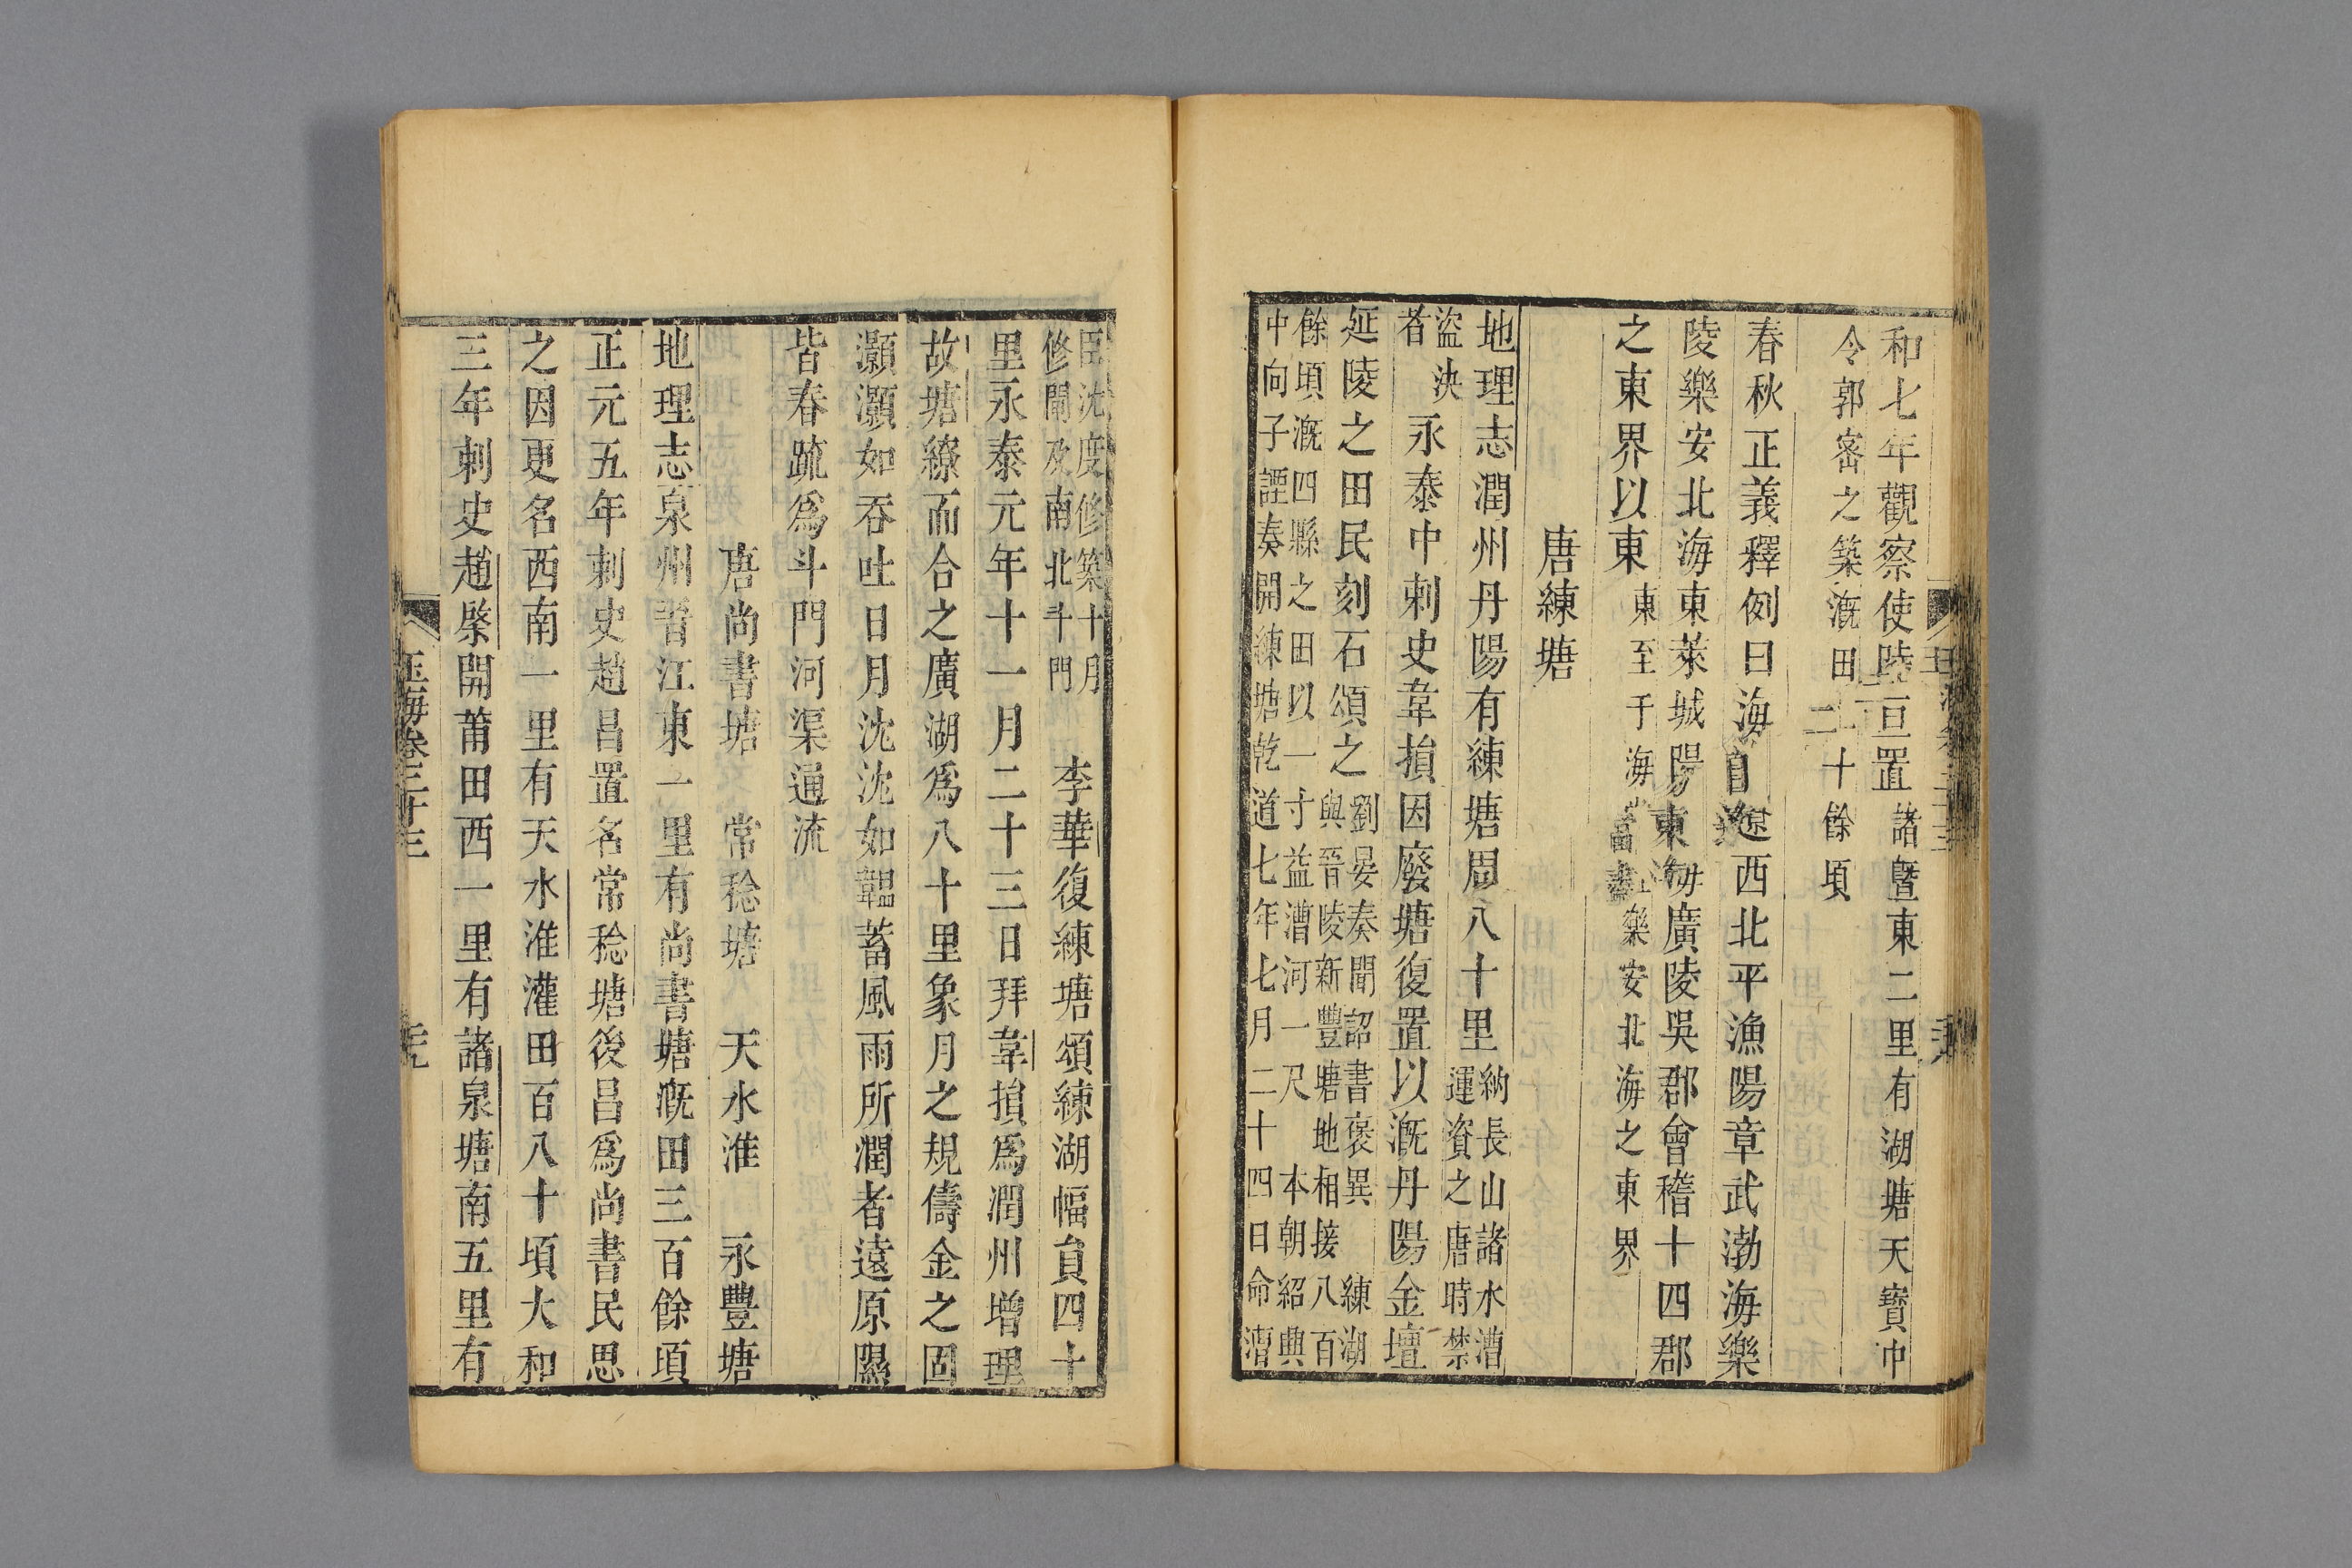 和七年觀察使陸亘置諸曁東二里有湖塘天寶中
令郭宻之築漑田二十餘頃
春秋正義釋例曰海自遼西北平漁陽章武渤海樂
陵樂安北海東萊城陽東海廣陵吳郡會稽十四郡
之東界以東東至于海樂安北海之東界
唐練塘
地理志潤州丹陽有練塘周八十里納長山諸水漕
運資之唐時禁
盜決
者永泰中刺史韋損因廢塘復置以漑丹陽金壇
延陵之田民刻石頌之劉晏奏聞詔書褒異 練湖
與晉陵新豐塘地相接八百
餘頃漑四縣之田以一寸益漕河一尺 本朝紹興
中向子諲奏開練塘乾道七年七月二十四日命漕
臣沈度修築十月
修閘及南北斗門
李華復練塘頌練湖幅員四十
里永泰元年十一月二十三日拜韋損爲潤州增理
故塘繚而合之廣湖爲八十里象月之規儔金之固
灝灝如吞吐日月沈沈如韞蓄風雨所潤者遠原隰
皆春䟽爲斗門河渠通流
唐尚書塘 常稔塘 天水淮 永豐塘
地理志泉州晉江東一里有尚書塘漑田三百餘頃
正元五年刺史趙昌置名常稔塘後昌爲尚書民思
之因更名西南一里有天水淮灌田百八十頃大和
三年刺史趙棨開莆田西一里有諸泉塘南五里有
玉海卷二十三